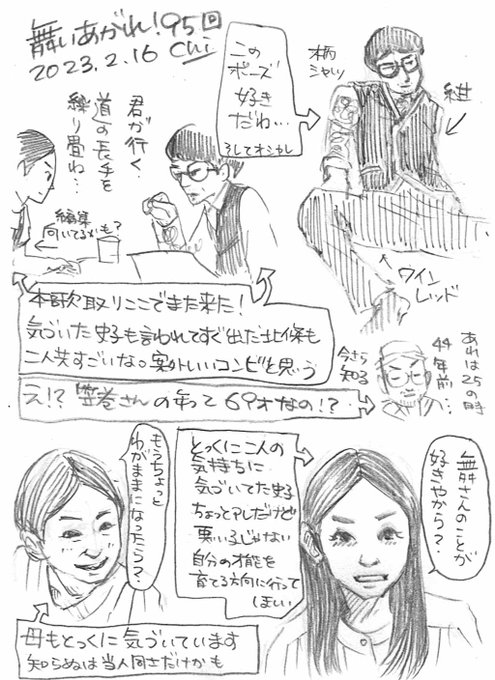 舞いあがれ！95回
2023.2.16 Chi
この
ポーズ
好き
だわ…
そしてオシャレ
柄
シャツ
紺
ワイン
レッド
君が行く
道の長手を
繰り畳ね…
編集
向いてるかも？
本歌取りここでまた来た！
気づいた史子も言われてすぐ出た北條も
二人共すごいな。案外いいコンビと思う
え!? 笠巻さんの年って69才なの!?
今さら
知る
あれは25の時
44年前…
もうちょっと
わがままになったら？
とっくに二人の
気持ちに
気づいてた史子
ちょっとアレだけど
悪い子じゃない
自分の才能を
育てる方向に行って
ほしい
舞さんのことが
好きやから？
母もとっくに気づいています
知らぬは当人同士だけかも